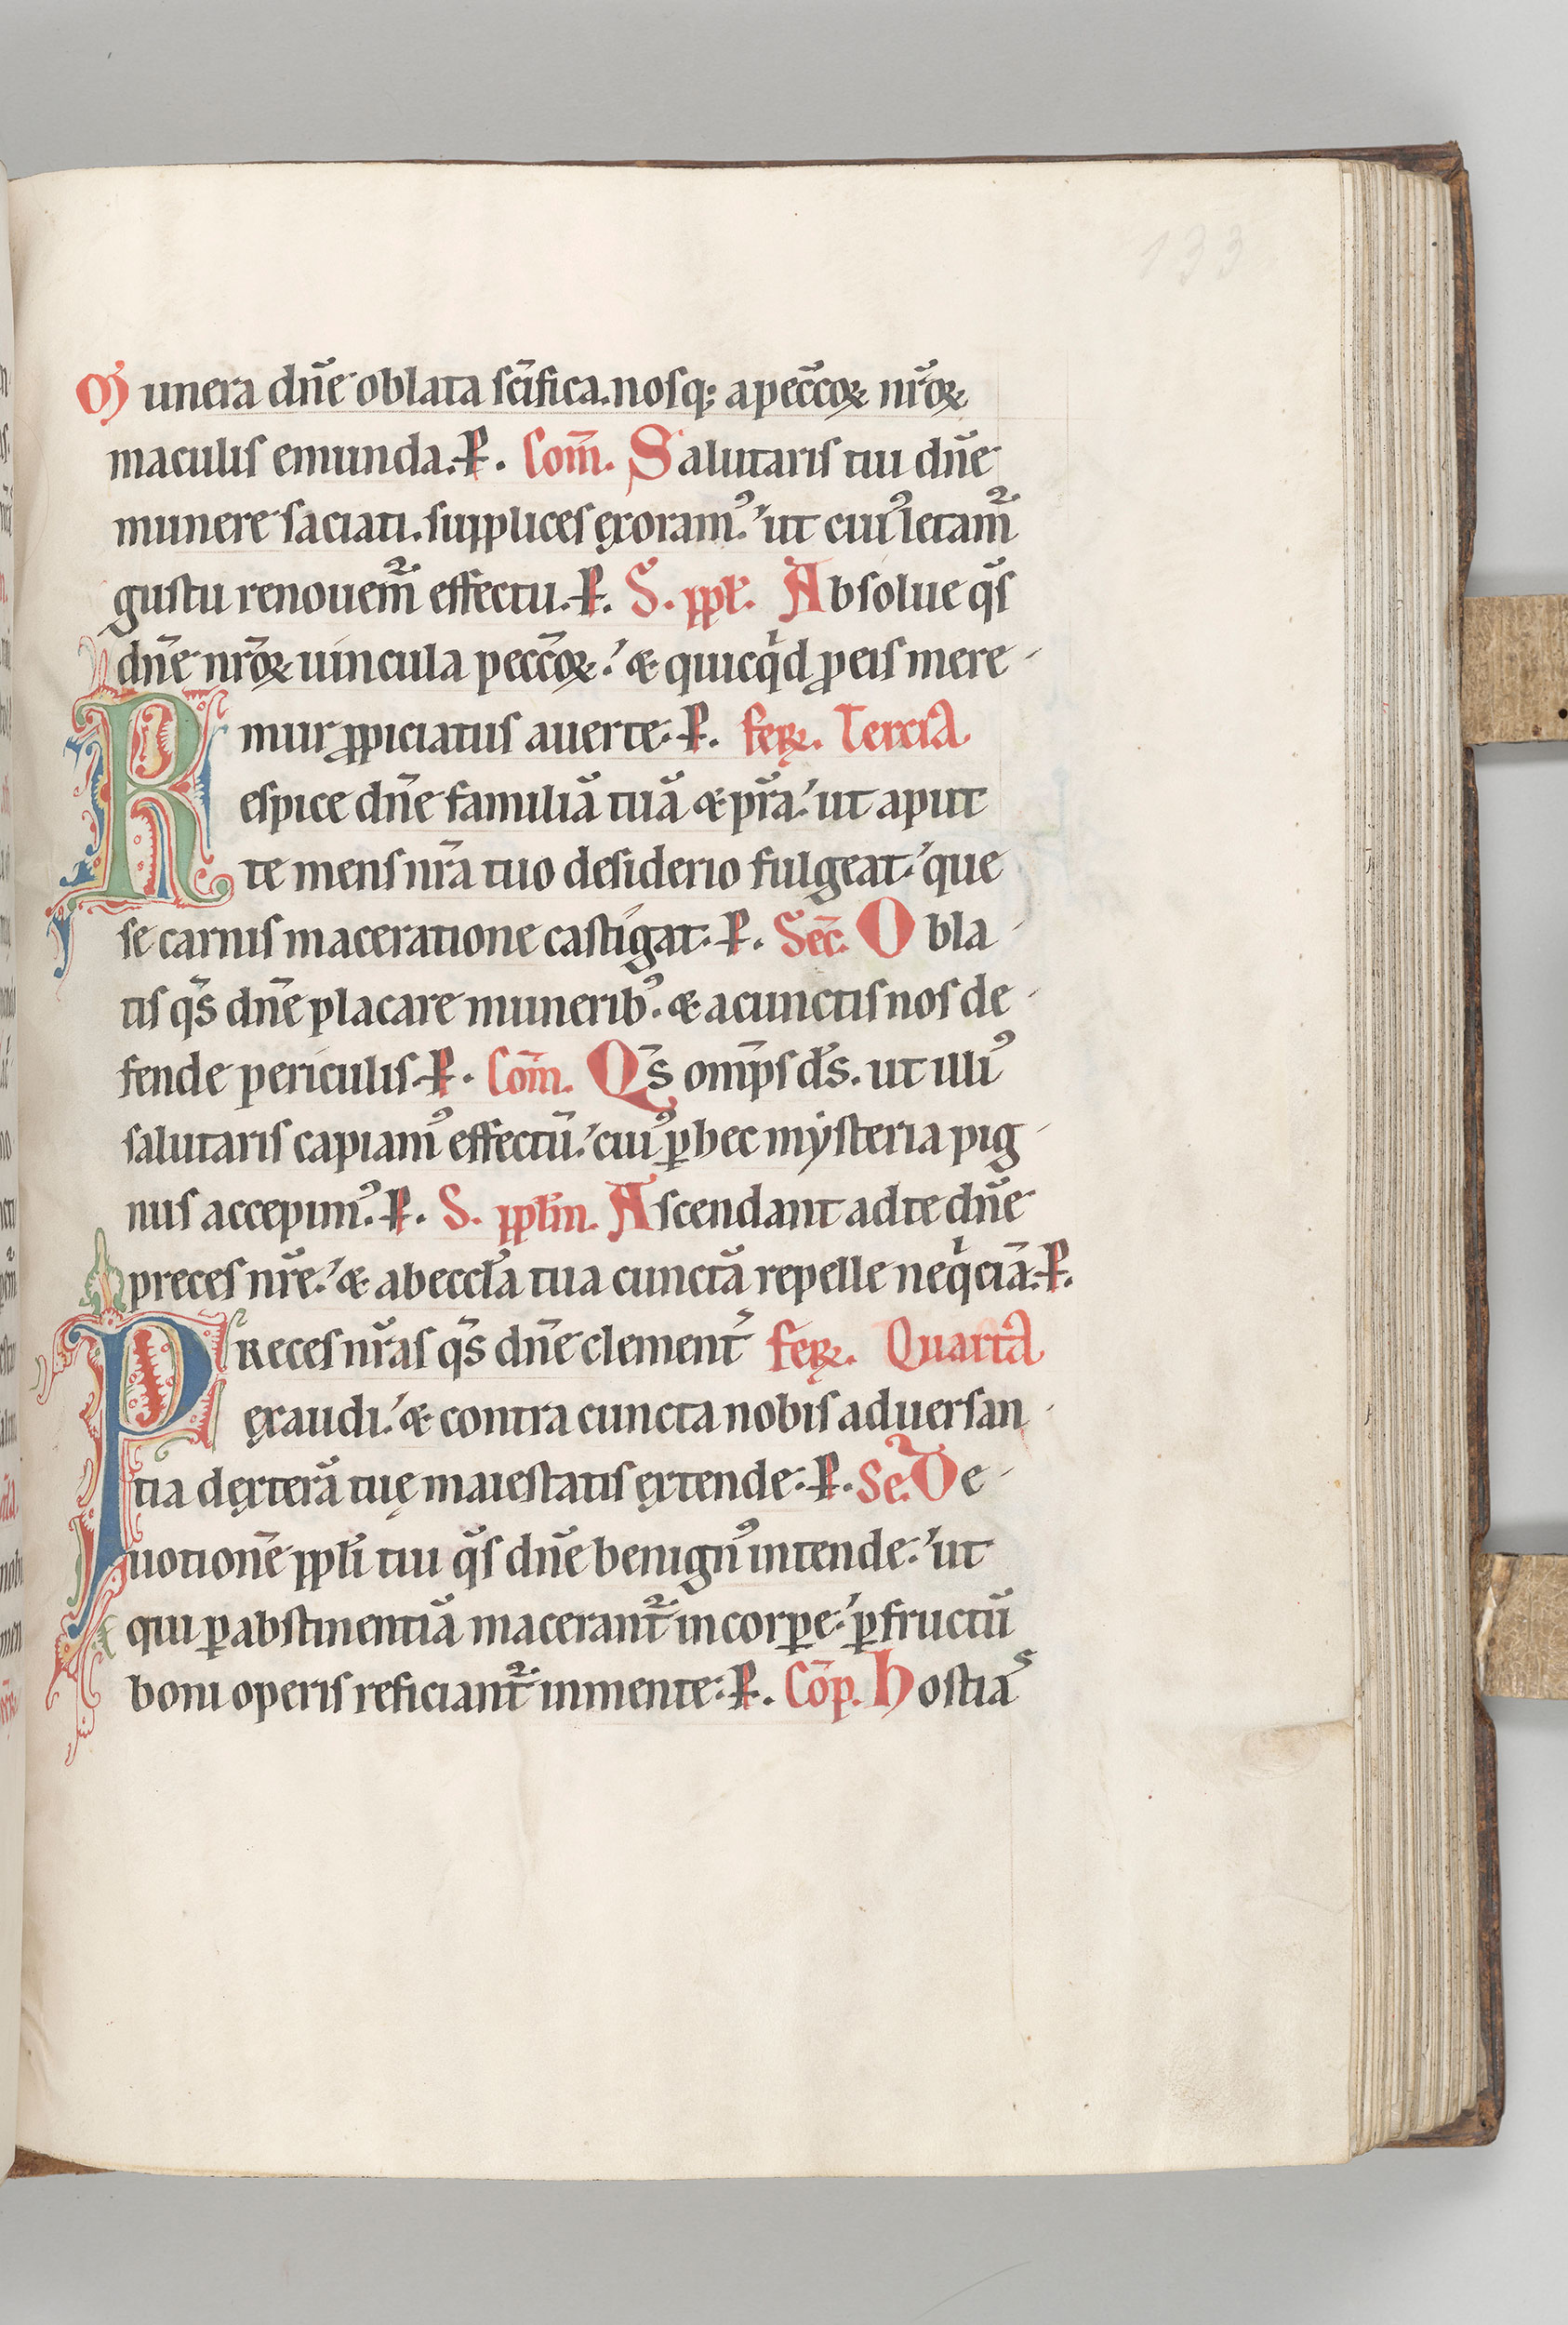 133
Munera dn̄e oblata sc̄ifica. nosq; a pecc̄oꝝ nr̄oꝝ
maculis emunda. P. Com̄. Salutaris tui dn̄e
munere saciati. supplices ęxoramꝰ. ut cuiꝰ letam᷑
gustu renouem᷑ effectu. P. S. ppl̄. Absolue qs̄
dn̄e nr̄oꝝ uincula pecc̄oꝝ. & quicqͥd ꝓ eis mere
mur ꝓpiciatus auerte. P. feꝝ. Tercia
Respice dn̄e familiā tuā & pr̄a. ut aput
te mens nr̄a tuo desiderio fulgeat. que
se carnis maceratione castigat. P. Sec̄. Obla
tis qs̄ dn̄e placare muneribꝰ. & a cunctis nos de
fende periculis. P. Com̄. Qs̄ omp̄s ds̄. ut illiꝰ
salutaris capiamꝰ effectū. cuiꝰ ꝑ hec mẏsteria pig
nus accepimꝰ. P. S. ppl̄m. Ascendant ad te dn̄e
preces nr̄e. & ab eccl̄a tua cunctā repelle neqͥciā. P.
Preces nr̄as qs̄ dn̄e clement᷑ feꝝ. Quarta
ęxaudi. & contra cuncta nobis aduersan
tia dęxterā tuę maiestatis ęxtende. P. Se᷑. De
uotionē ppl̄i tui qs̄ dn̄e benignꝰ intende. ut
qui ꝑ abstinentiā macerant᷑ in corꝑe. ꝑ fructū
boni operis reficiant᷑ in mente. P. Cōp. Hostias